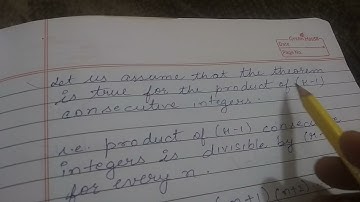 Date
Page No.
Let us assume that the theorem
is true for the product of (r-1)
consecutive integers.
i.e. product of (r-1)
integers is divisible by
for every n.
(n+1) (n+2)